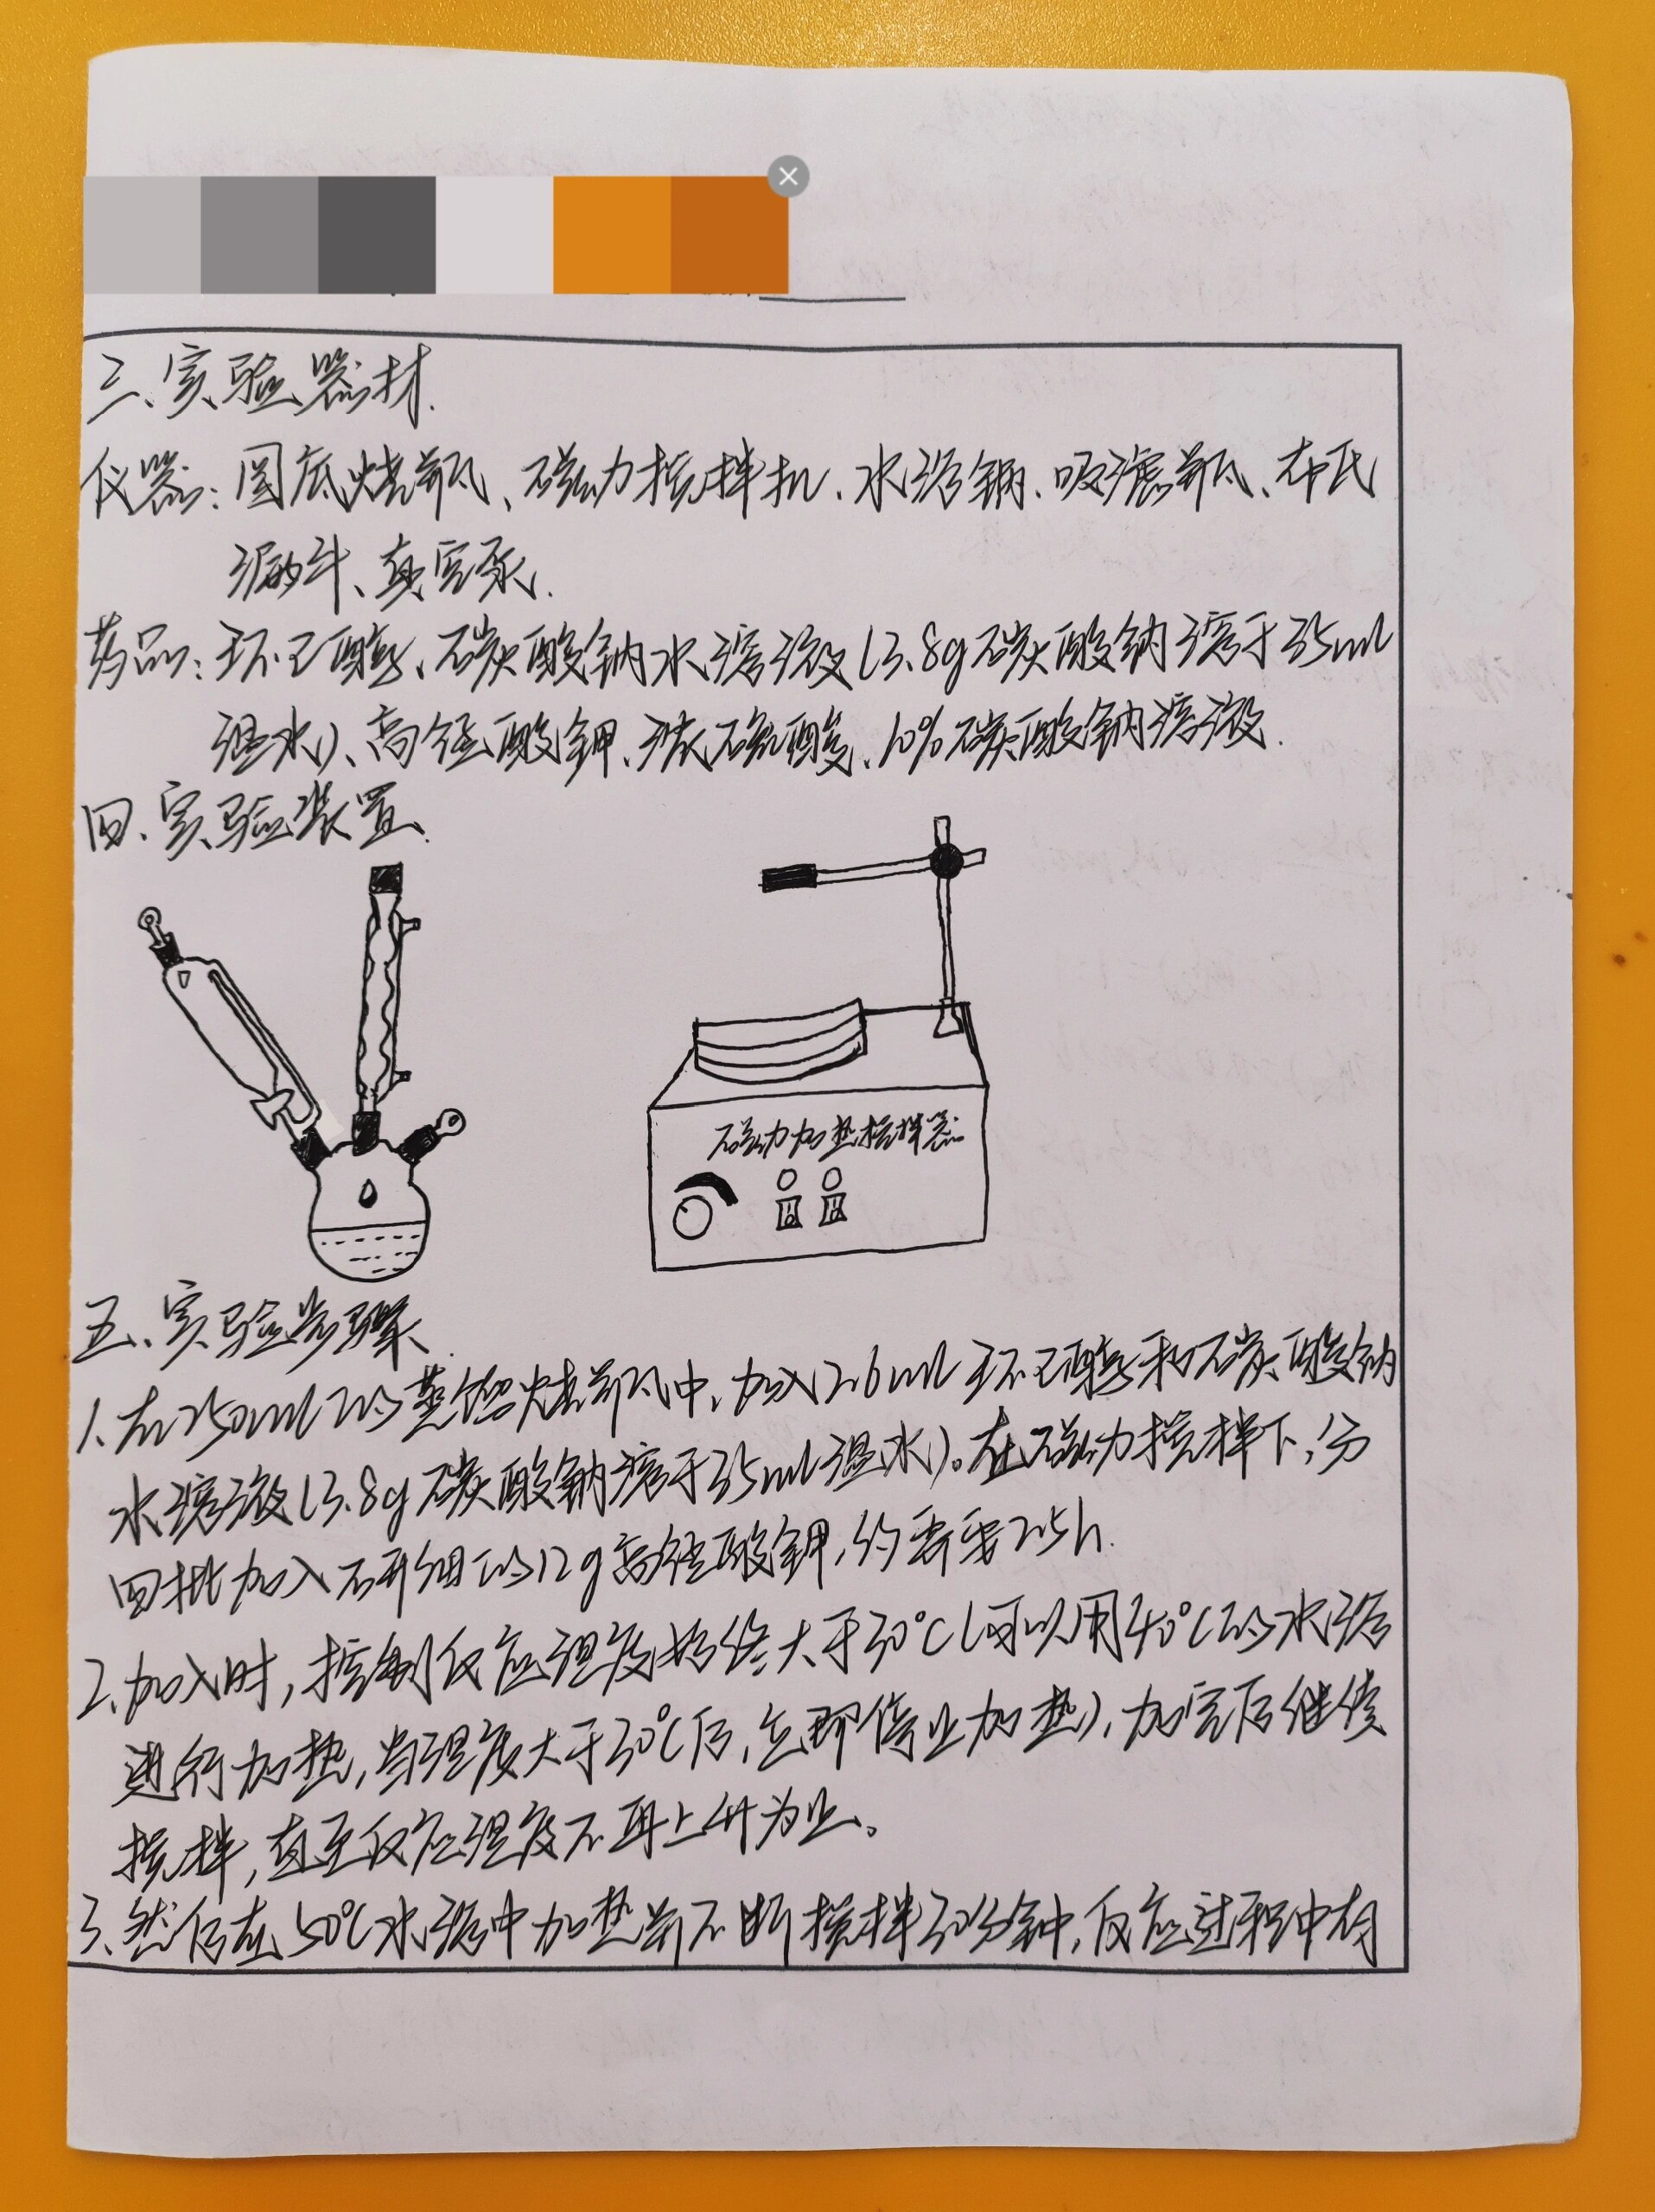 三、实验器材.
仪器：圆底烧瓶、磁力搅拌机、水浴锅、吸滤瓶、布氏
漏斗、真空泵.
药品：环己醇、碳酸钠水溶液（3.8g碳酸钠溶于35ml
温水）、高锰酸钾、浓硫酸、10%碳酸钠溶液.
四、实验装置.
磁力加热搅拌器
五、实验步骤.
1、在250ml的蒸馏烧瓶中，加入2.6ml环己醇和碳酸钠
水溶液（3.8g碳酸钠溶于35ml温水）。在磁力搅拌下，分
四批加入研细的12g高锰酸钾，约需要2.5h.
2、加入时，控制反应温度始终大于30℃（可以用40℃的水浴
进行加热，当温度大于30℃后，立即停止加热），加完后继续
搅拌，直至反应温度不再上升为止。
3、然后在50℃水浴中加热并不断搅拌30分钟，反应过程中有